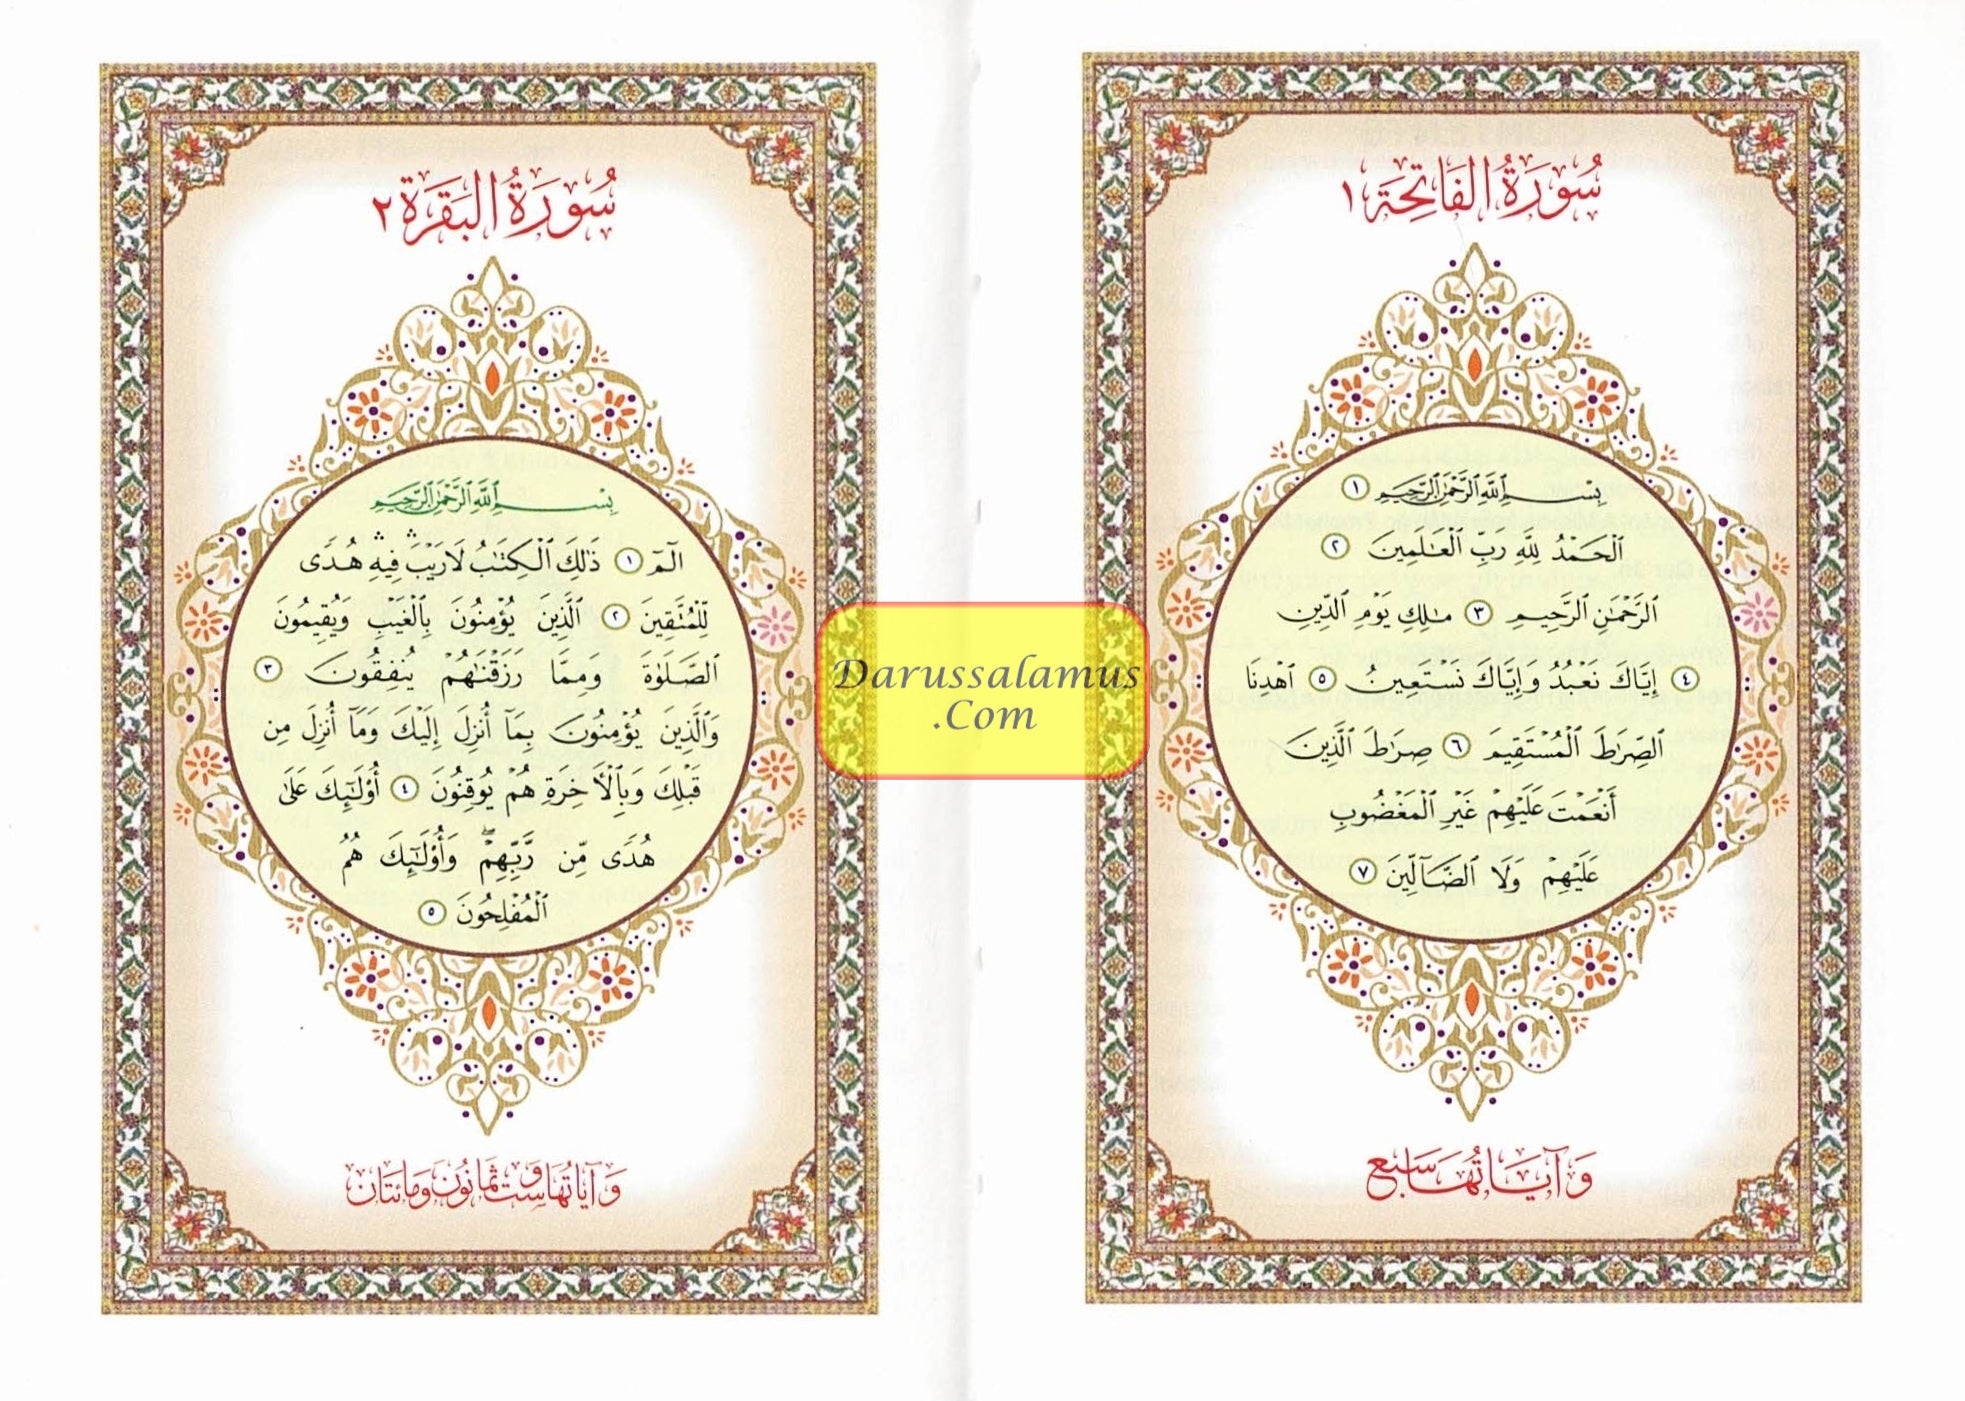 سُورَةُ الفَاتِحَة ١
بِسْمِ ٱللَّهِ ٱلرَّحْمَٰنِ ٱلرَّحِيمِ ١
ٱلْحَمْدُ لِلَّهِ رَبِّ ٱلْعَٰلَمِينَ ٢
ٱلرَّحْمَٰنِ ٱلرَّحِيمِ ٣ مَٰلِكِ يَوْمِ ٱلدِّينِ
٤ إِيَّاكَ نَعْبُدُ وَإِيَّاكَ نَسْتَعِينُ ٥ ٱهْدِنَا
ٱلصِّرَٰطَ ٱلْمُسْتَقِيمَ ٦ صِرَٰطَ ٱلَّذِينَ
أَنْعَمْتَ عَلَيْهِمْ غَيْرِ ٱلْمَغْضُوبِ
عَلَيْهِمْ وَلَا ٱلضَّآلِّينَ ٧
وَآيَاتُهَا سَبْع
سُورَةُ البَقَرَة ٢
بِسْمِ ٱللَّهِ ٱلرَّحْمَٰنِ ٱلرَّحِيمِ
الٓمٓ ١ ذَٰلِكَ ٱلْكِتَٰبُ لَا رَيْبَ ۛ فِيهِ ۛ هُدًى
لِّلْمُتَّقِينَ ٢ ٱلَّذِينَ يُؤْمِنُونَ بِٱلْغَيْبِ وَيُقِيمُونَ
ٱلصَّلَوٰةَ وَمِمَّا رَزَقْنَٰهُمْ يُنفِقُونَ ٣
وَٱلَّذِينَ يُؤْمِنُونَ بِمَآ أُنزِلَ إِلَيْكَ وَمَآ أُنزِلَ مِن
قَبْلِكَ وَبِٱلْأَخِرَةِ هُمْ يُوقِنُونَ ٤ أُوْلَٰٓئِكَ عَلَىٰ
هُدًى مِّن رَّبِّهِمْ ۖ وَأُوْلَٰٓئِكَ هُمُ
ٱلْمُفْلِحُونَ ٥
وَآيَاتُهَا سِتٌّ وَثَمَانُونَ وَمَائتَان
Darussalamus
.Com